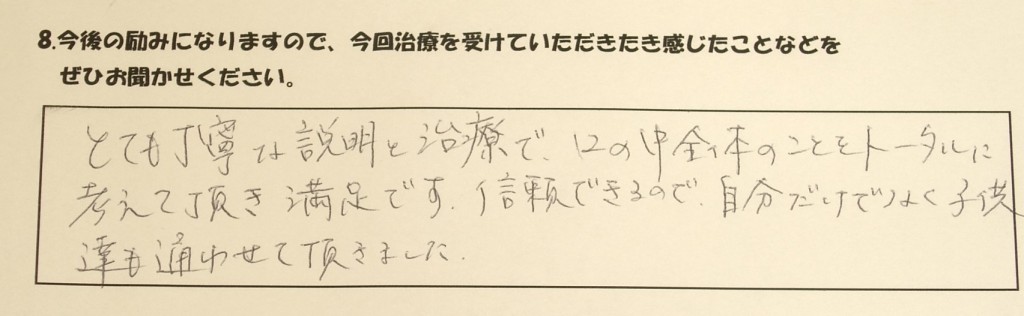 8.今後の励みになりますので、今回治療を受けていただきたき感じたことなどを
ぜひお聞かせください。
とても丁寧な説明と治療で、口の中全体のことをトータルに
考えて頂き満足です。信頼できるので、自分だけでなく子供
達も通わせて頂きました。